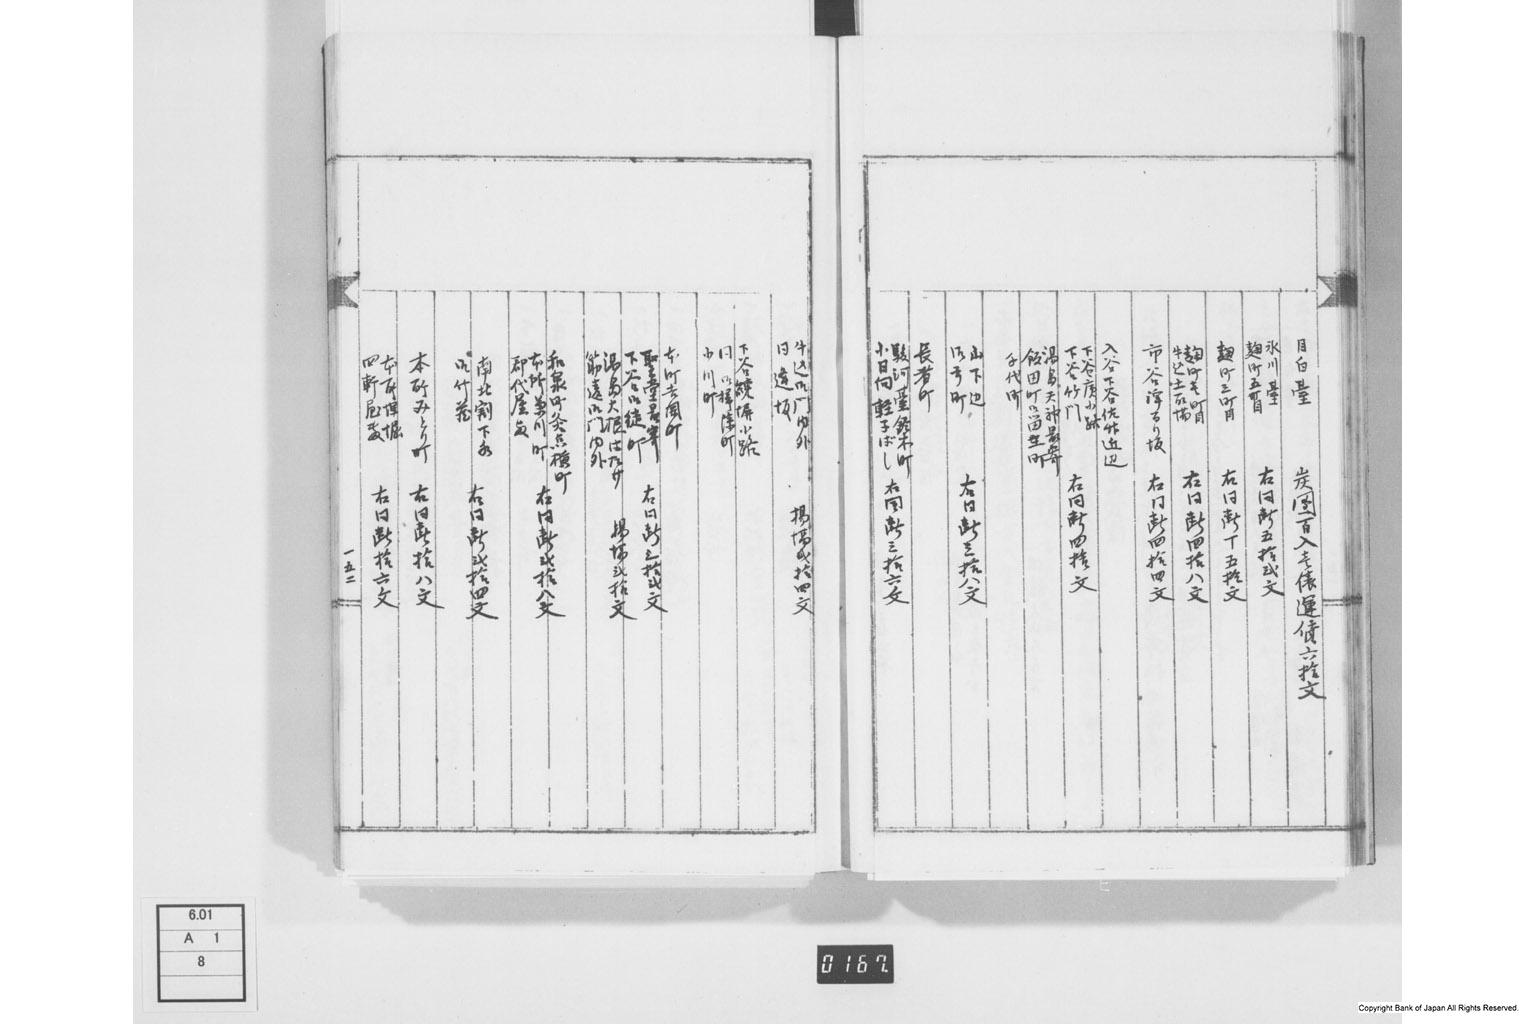 目白臺 炭團百入壱俵運賃六拾文
氷川臺
麹町五町目 右同断五拾弐文
麹町三町目 右同断丁五拾文
麹町壱町目
牛込土取場 右同断四拾八文
市谷浄るり坂 右同断四拾四文
入谷下谷佐竹近辺
下谷広小路
下谷竹門 右同断四拾文
湯島天神最寄
飯田町 町
千代町
山下辺
町 右同断三拾八文
長者町
駿河臺鈴木町
小日向軽子ばし 右同断三拾六文
牛込御門内外
同逢坂 揚場弐拾四文
下谷練塀小路
同 町
小川町
本町 町
聖堂最寄
下谷御徒町 右同断三拾弐文
湯島大根はたけ
筋違御門内外 揚場弐拾文
和泉町 町
本所 川町 右同断弐拾八文
郡代屋敷
南北割下水
御竹蔵 右同断弐拾四文
本所みとり町 右同断拾八文
本所 堀
四軒屋敷 右同断拾六文
一五二
6.01
A 1
8
0167
Copyright Bank of Japan All Rights Reserved.